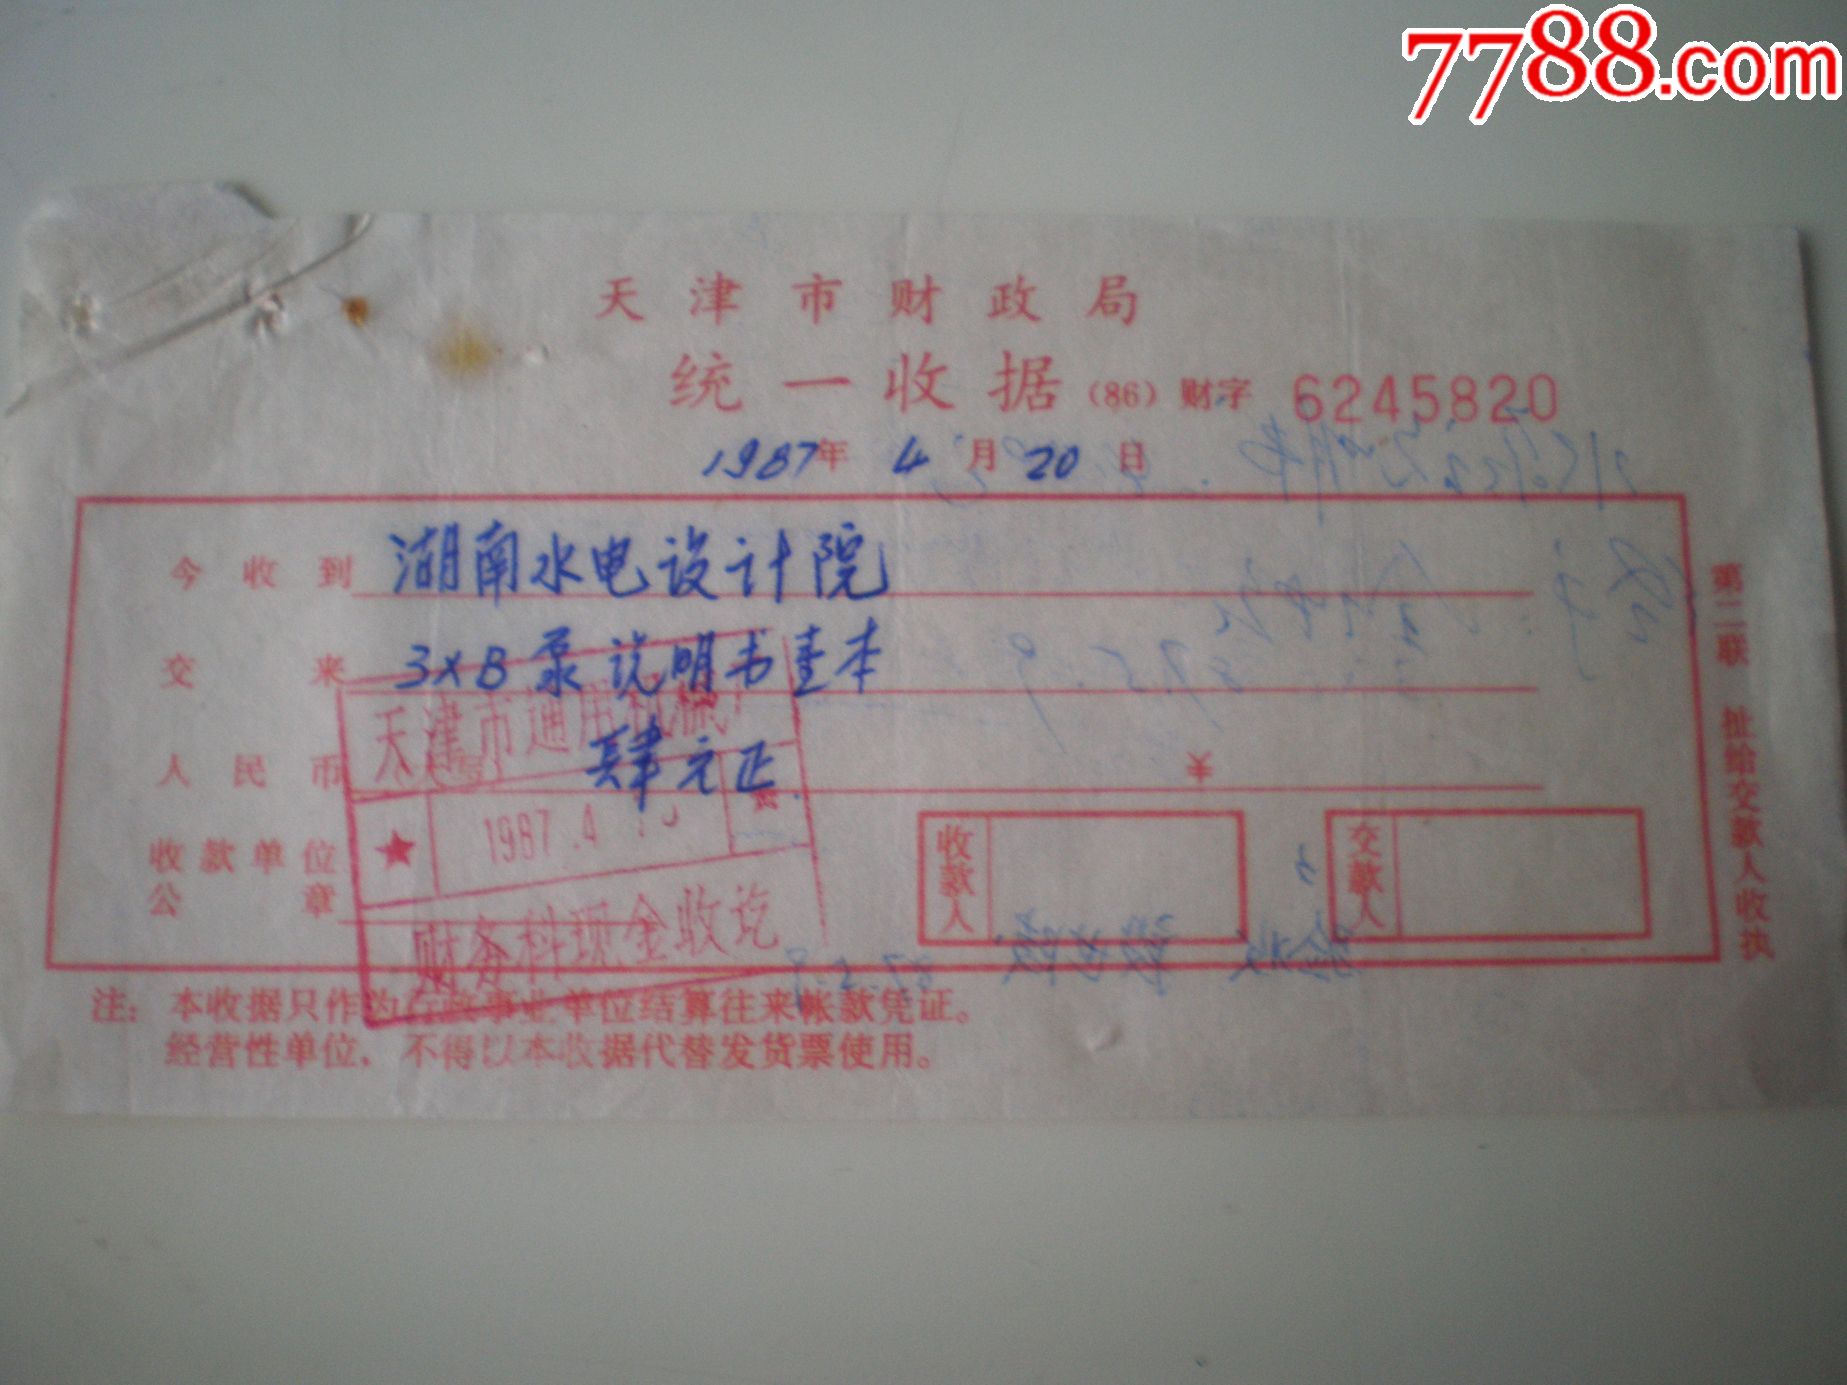 7788.com
天津市财政局
统一收据(86)财字 6245820
1987年 4月20日
今收到 湖南水电设计院
交来 3XB泵说明书壹本
人民币 肆元正 ¥
收款单位公章
收款人
交款人
天津市通用机械厂
★ 1987.4 ★
财务科现金收讫
第二联 扯给交款人收执
注：本收据只作为行政事业单位结算往来帐款凭证。
经营性单位，不得以本收据代替发货票使用。